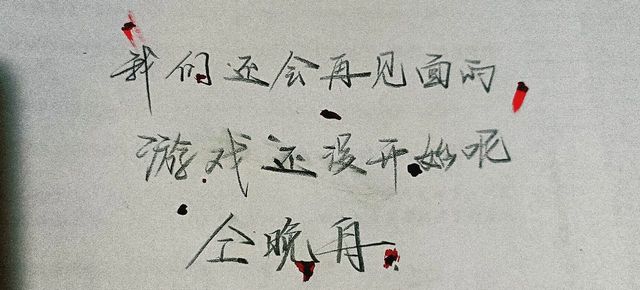 我们还会再见面的
游戏还没开始呢
仝晚舟